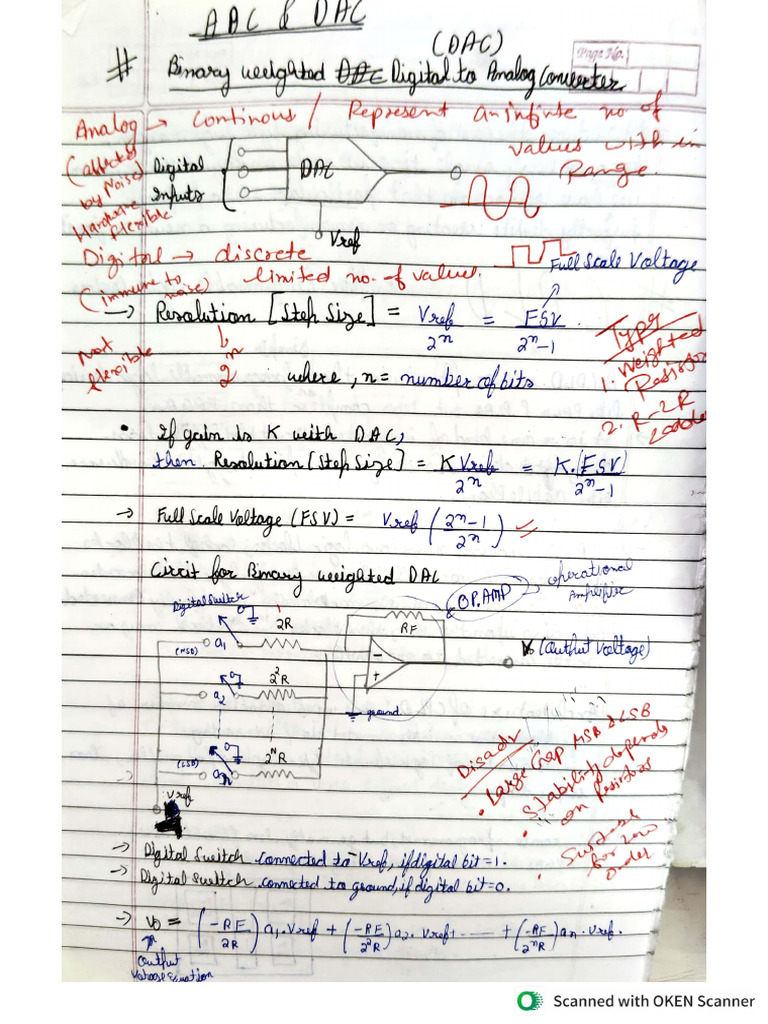 ADC & DAC
Page No.
(DAC)
# Binary weighted Digital to Analog Converter
Analog → Continous / Represent an infinte no of
values with in
Range.
(affected
by Noise)
Hardware
flexible
Digital
Inputs
DAC
Vref
Digital → discrete
limited no. of values.
(immune to
noise)
Full Scale Voltage
→ Resolution [Step Size] = Vref/2^n = FSV/2^n-1
Not
flexible
2^n where, n = number of bits
Types
1. Weighted
Resistor
2. R-2R
Ladder
• If gain is K with DAC,
then Resolution [Step Size] = K Vref/2^n = K.(FSV)/2^n-1
→ Full Scale Voltage (FSV) = Vref (2^n-1/2^n)
Circit for Binary weighted DAC
OP.AMP
operational
Amplifier
Digital Switch
2R
RF
(MSB) a1
Vo (Output Voltage)
2²R
a2
ground
2^N R
(LSB) an
Vref
Disadv
• Large Gap MSB & LSB
• Stability depends
on Resistors
• for Low
order
→ Digital Switch connected to Vref, if digital bit = 1.
→ Digital switch connected to ground, if digital bit = 0.
→ Vo = (-RF/2R) a1.Vref + (-RF/2²R) a2.Vref + ...... + (-RF/2^n R) an.Vref.
Output
Voltage Equation
Scanned with OKEN Scanner